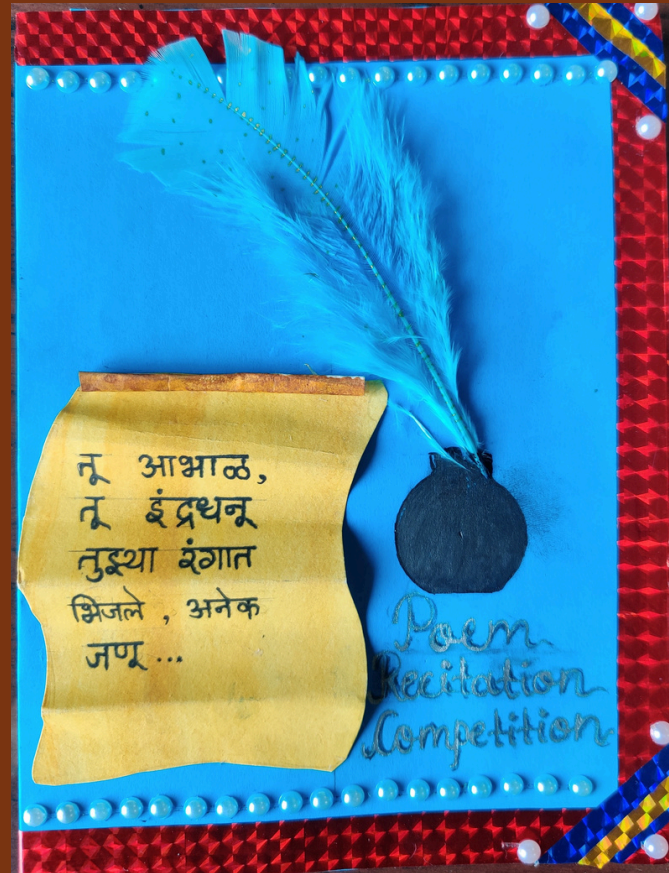 तू आभाळ,
तू इंद्रधनू
तुझ्या रंगात
भिजले, अनेक
जणू...
Poem
Recitation
Competition